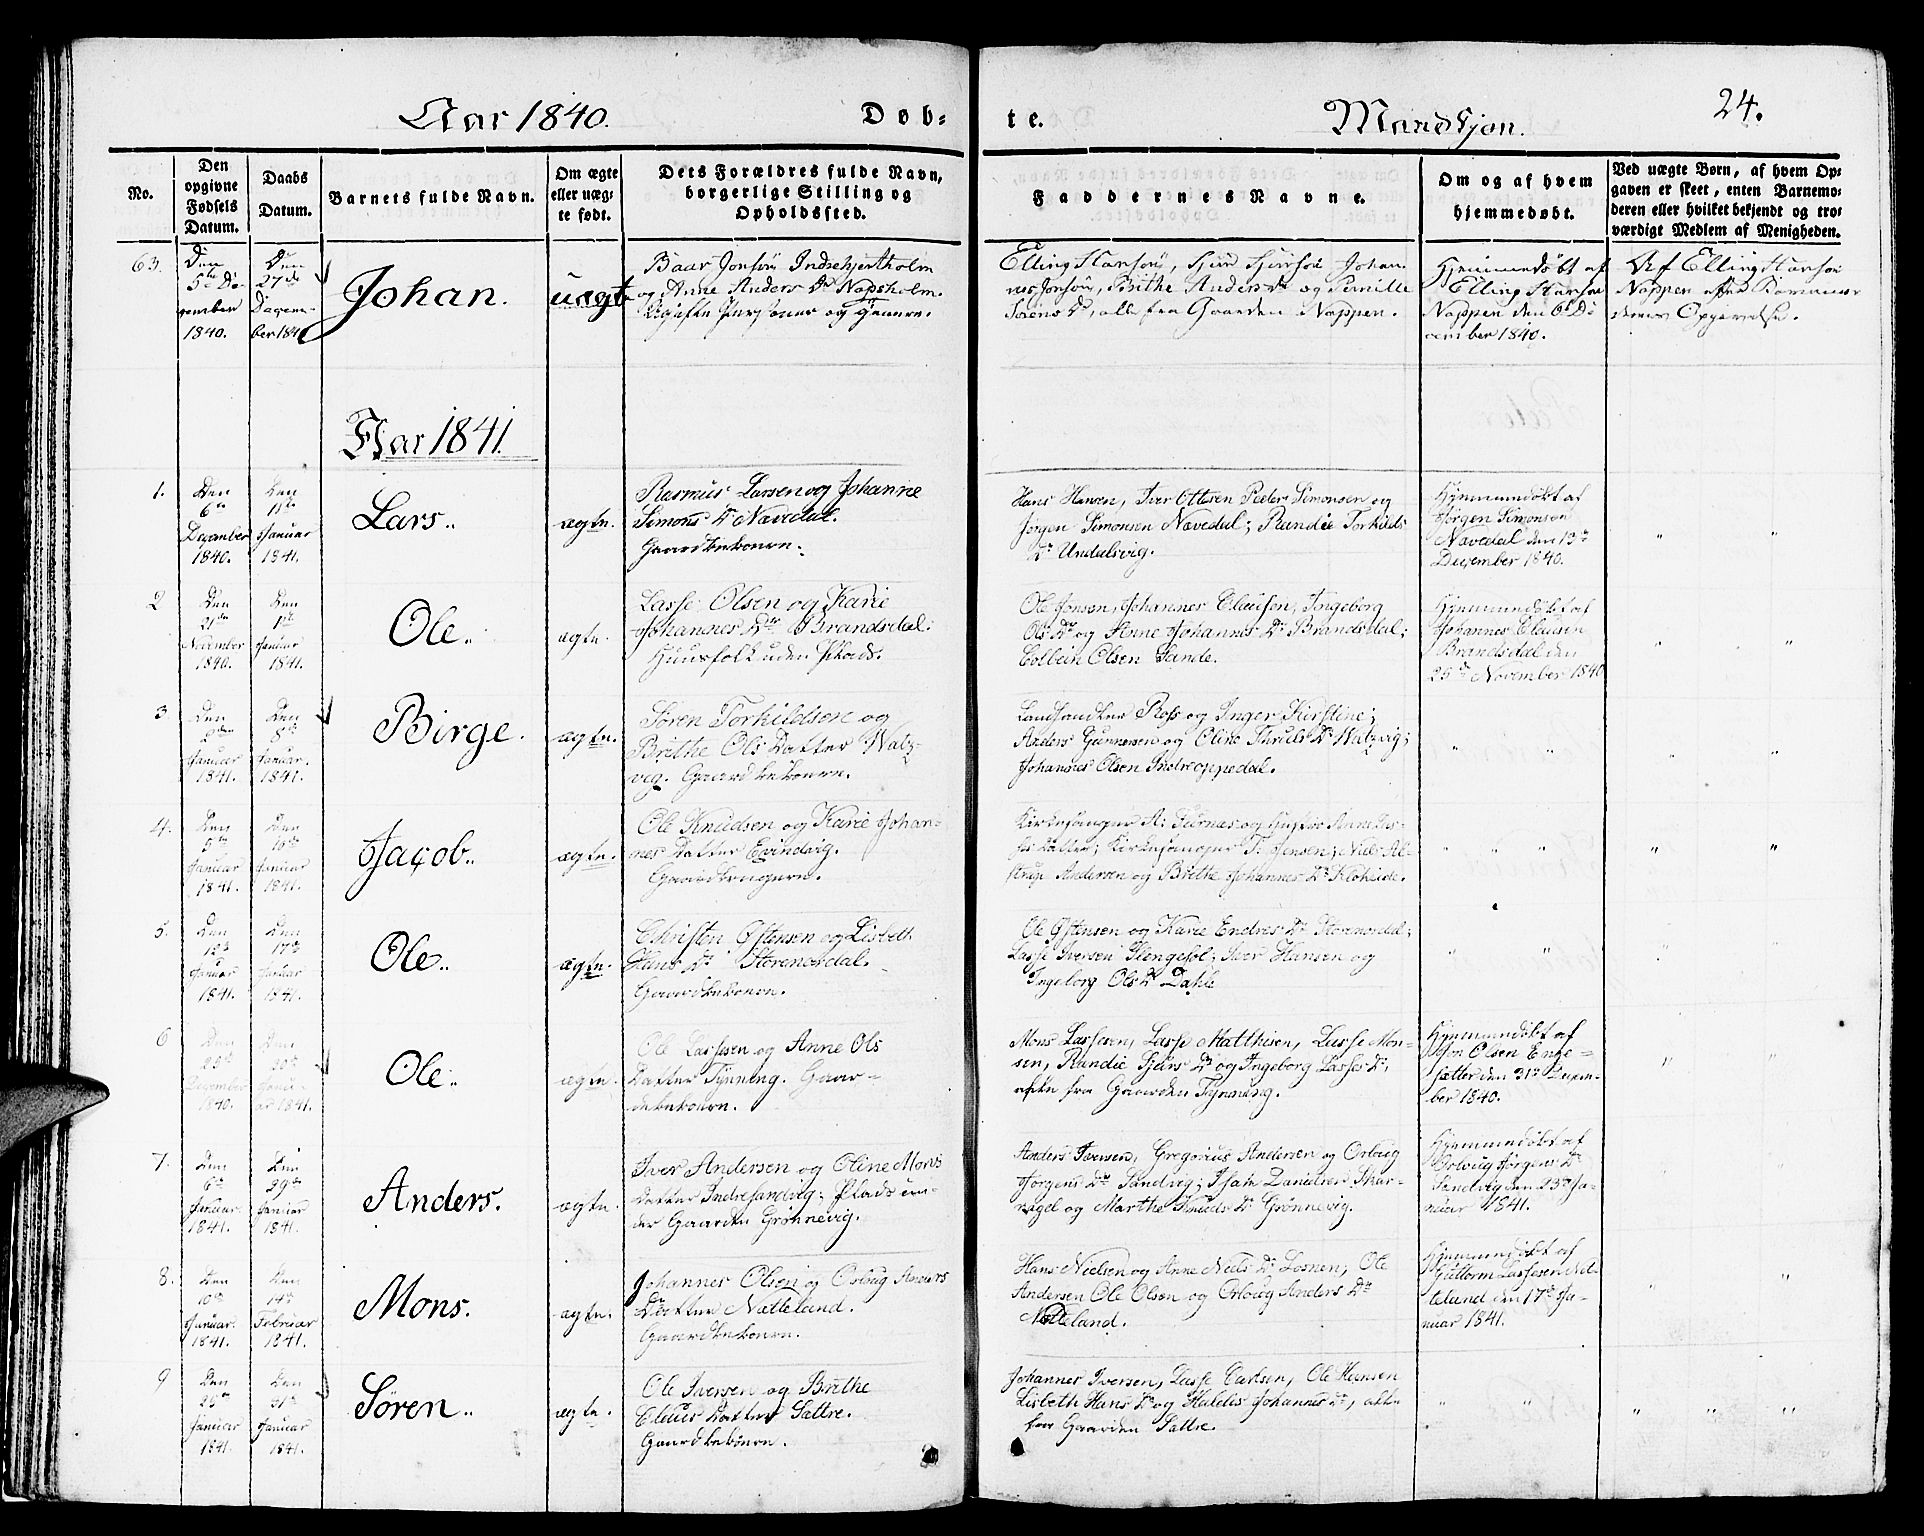 Aar 1840.
Døb-
te.
Mandkjøn.
24.
No.
Den opgivne Fødsels Datum.
Daabs Datum.
Barnets fulde Navn.
Om ægte eller uægte født.
Dets Forældres fulde Navn, borgerlige Stilling og Opholdssted.
Faddernes Navne.
Om og af hvem hjemmedøbt.
Ved uægte Børn, af hvem Opgaven er skeet, enten Barnemoderen eller hvilket bekjendt og troværdigt Medlem af Menigheden.
63.
Den
5te De
cember
1840.
Den
27de
Decem-
ber 1840
Johan.
uægte
og Anne Anders Dr
Ugifte Personer og
Elling
nes Jonsøn, Brithe Anders Dr og Pernille
Sørens Dr, alle fra Gaarden Nappen.
Hjemmedøbt af
Elling
Nappen den 6te De
cember 1840.
Af Elling
Nappen efter
Opgivelse.
Aar 1841.
1.
Den
6te
December
1840.
Den
1ste
Januar
1841.
Lars.
ægte.
Rasmus Larsen og Johanne
Simons Dr Navedal.
Gaardbeboere.
Hans Hansen, Iver Ottesen Peder Simonsen og
Jørgen Simonsen Navedal; Randie Torkilds
Dr Undalsvig.
Hjemmedøbt af
Jørgen Simonsen
Navedal den 13de
December 1840.
2
Den
21de
November
1840.
Den
1ste
Januar
1841.
Ole.
ægte.
Lasse Olsen og Karie
Johannes Dtr Brandsdal.
Huusfolk uden Plads.
Ole Jonsen, Johannes Clausen, Ingeborg
Ols Dtr og Anne Johannes Dr Brandsdal;
Colbein Olsen Sande.
Hjemmedøbt af
Johannes Clausen
Brandsdal den
25de November 1840
3
Den
Januar
1841.
Den
8de
Januar.
1841.
Birge.
ægte.
Søren Torkildsen og
Brithe Ols Datter Watz-
vig. Gaardbeboere.
Landhandler Ross og Inger Kirstine;
Anders Gunnersen og Oline Thruls Dr Watzvig;
Johannes Olsen Indreoppedal.
4.
Den
5te
Januar
1841.
Den
Januar
1841.
Jacob.
ægte.
Ole Knudsen og Karie Johan-
nes Datter Evindvig.
Kirkesanger A: og Hustru Anne Las-
ses Datter; Kirkesanger T. Jensen; Niels Al-
strup Andersen og Brithe Johannes Dr
5.
Den
12te
Januar
1841.
Den
17de
Januar
1841.
Ole.
ægte.
Christen Østensen og Lisbeth
Hans Dr Storemordal.
Gaardbeboere.
Ole Østensen og Karie Endres Dr Storemordal;
Lasse Iversen Slengesol; Iver Hansen og
Ingeborg Ols Dr Dahle
6
Den
25de
December
1840.
Den
Janu-
ar 1841.
Ole.
ægte.
Ole Lassesen og Anne Ols
Datter Tynning. Gaar-
debeboere.
Mons Lassesen, Lasse Matthisen, Lasse Mon-
sen, Randie Siurs Dr og Ingeborg Lasses Dr,
alle fra Gaarden Tynning.
Hjemmedøbt af
Jon Olsen Enge-
sætter den 31te Decem-
ber 1840.
7.
Den
6te
Januar
1841.
Den
29de
Januar
1841.
Anders.
ægte.
Iver Andersen og Oline Mons
Datter Indresandvig; Plads un-
der Gaarden Grønnevig.
Anders Iversen, Gregorius Andersen og Orlaug
Jørgens Dr Sandvig; Isak Danielsen Skar-
nagel og Marthe Knuds Dr Grønnevig.
Hjemmedøbt af
Jørgens Dr
Sandvig den 23de Ja-
nuar 1841.
8.
Den
10de
Januar.
1841.
Den
14de
Februar
1841.
Mons.
ægte.
Johannes Olsen og Orlaug Anders
Datter Natteland.
Gaardbeboere.
Hans Nielsen og Anne Niels Dr Losnen; Ole
Andersen Ole Olsen og Orlaug Anders Dr
Natteland.
Hjemmedøbt af
Guttorm Lassesen Nat-
teland den 17de Ja-
nuar 1841.
9
Den
25de
Januar
1841.
Den
31te
Januar
1841.
Søren.
ægte.
Ole Iversen og Brithe
Claus Datter Sattre.
Gaardbeboere.
Johannes Iversen, Lasse Carlsen, Ole Hansen
Lisbeth Hans Dr og Johannes Dr, alle
fra Gaarden Sattre.